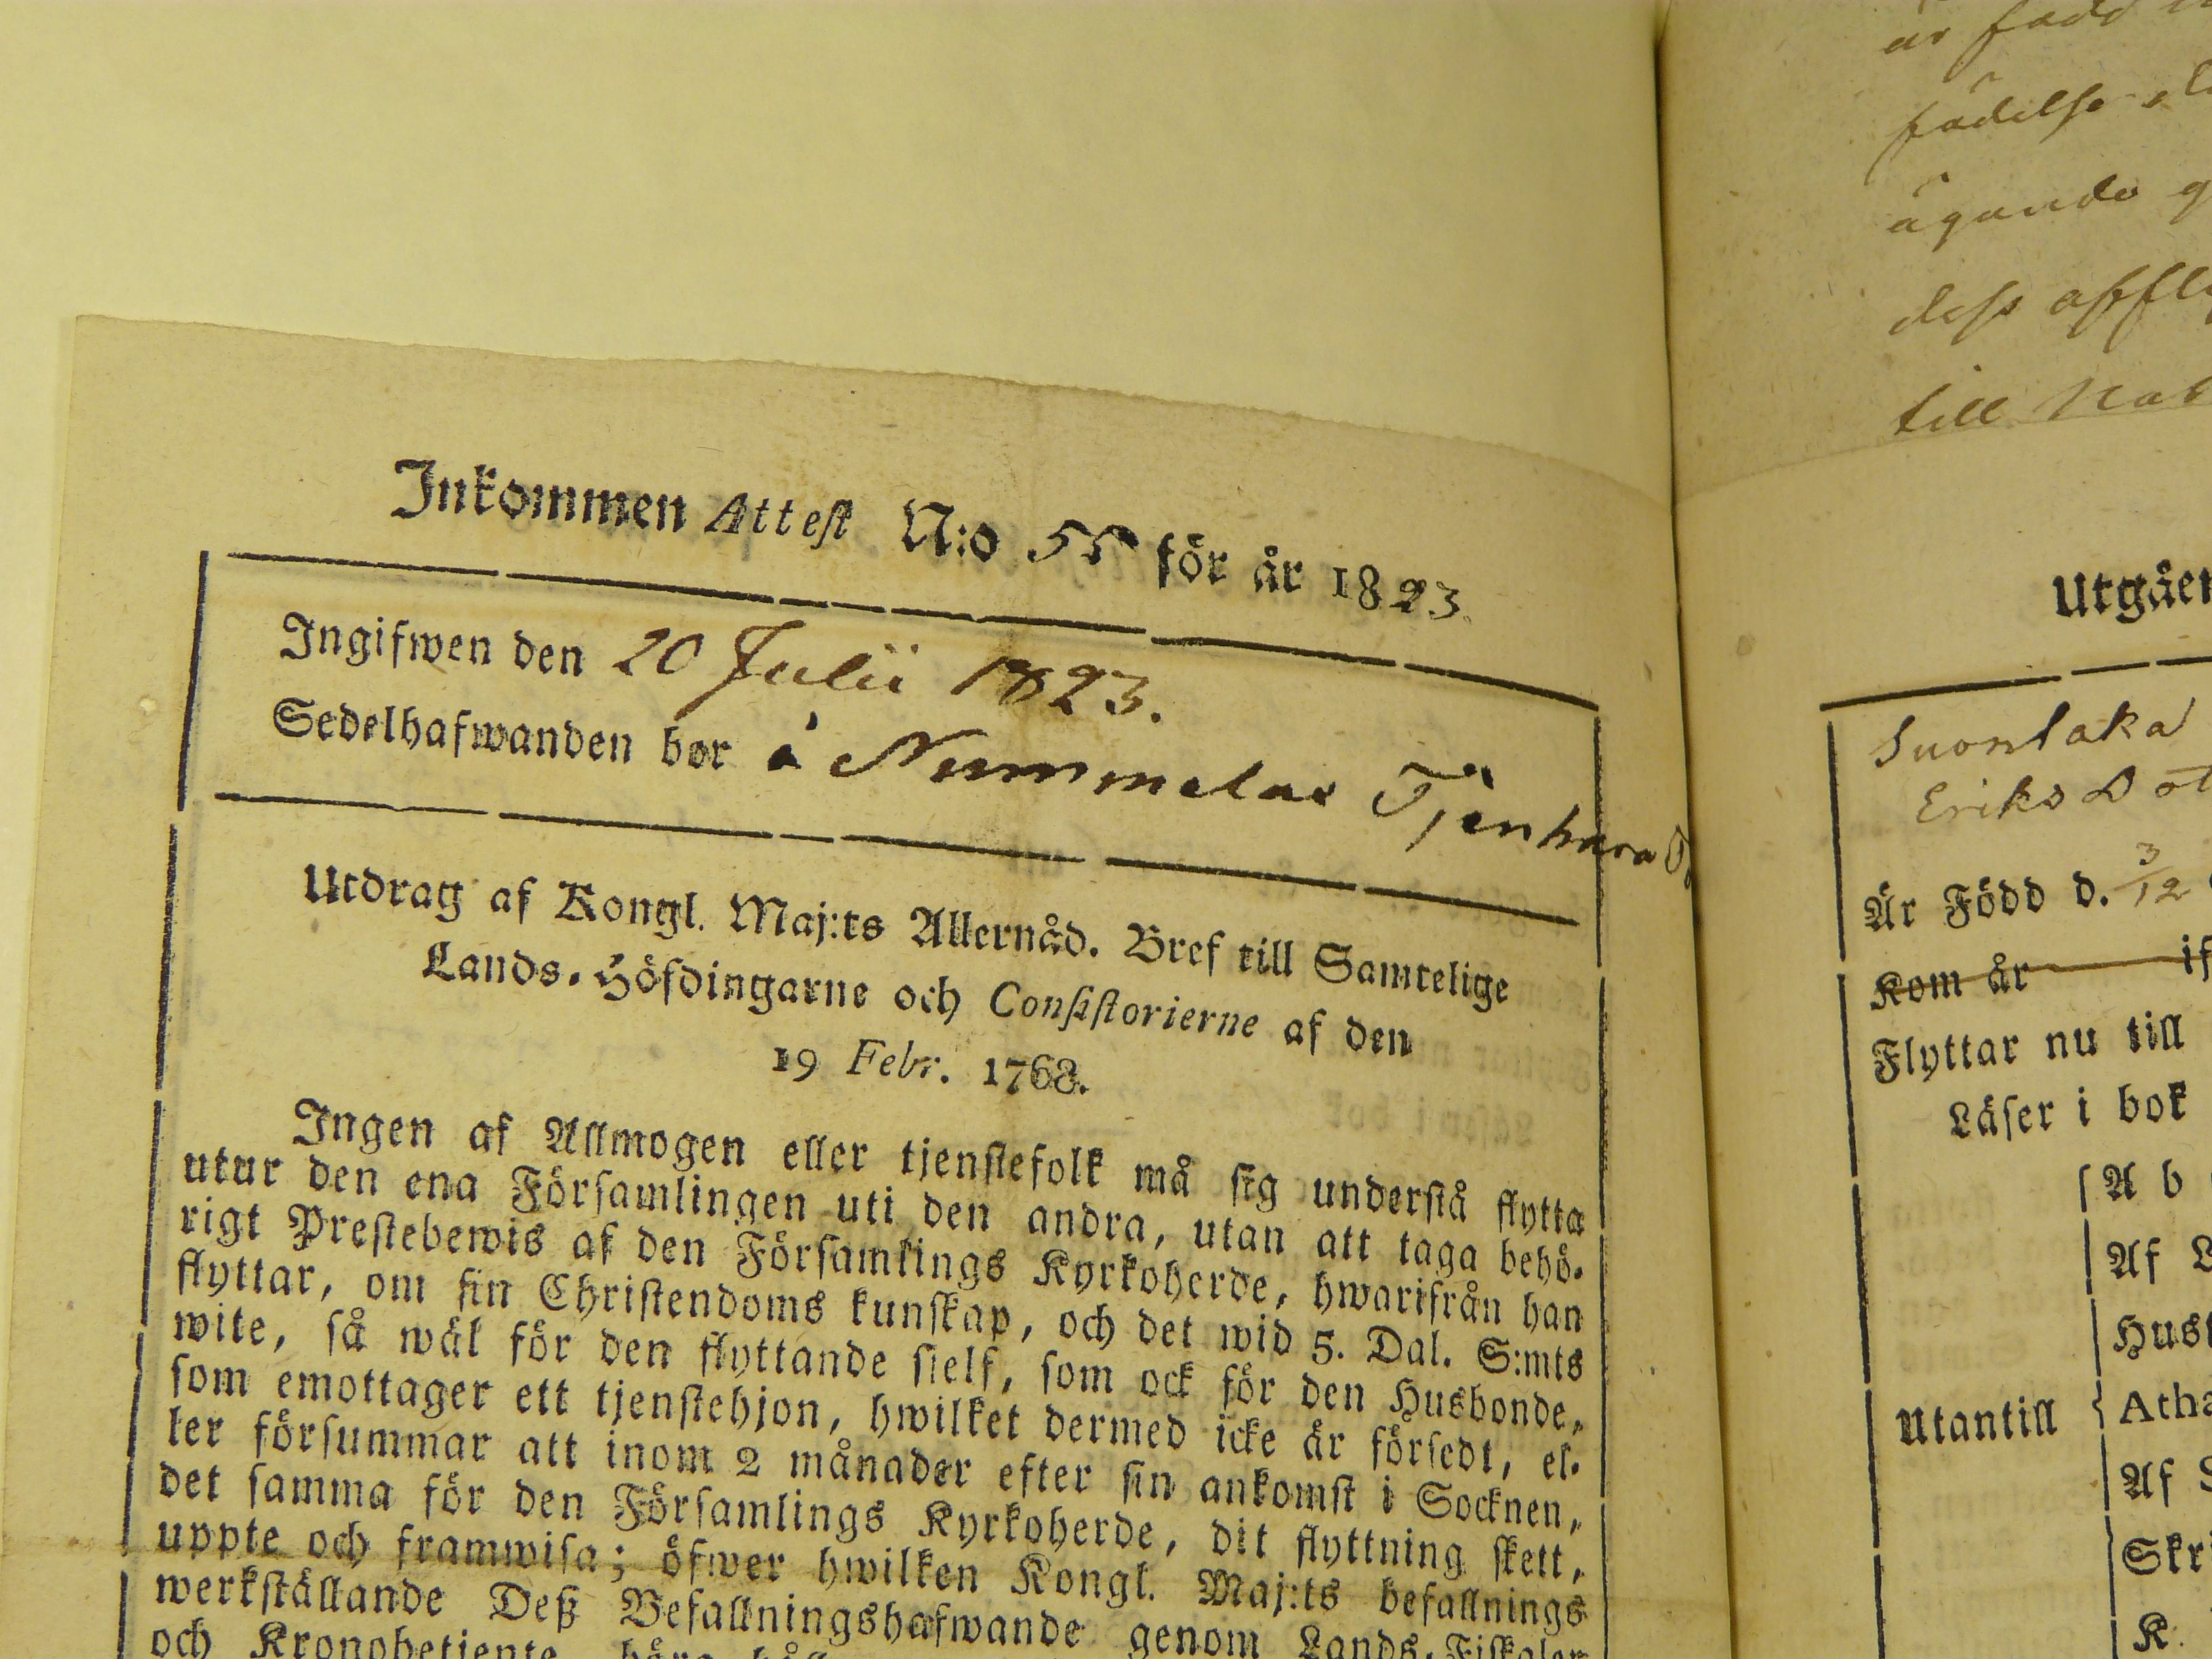 Inkommen Attest N:o 55 för år 1823.
Ingifwen den 20 Julii 1823.
Sedelhafwanden bor å Nummelas Tjenhara
Utdrag af Kongl. Maj:ts Allernåd. Bref till Samtelige
Lands-Höfdingarne och Consistorierne af den
19 Febr. 1768.
Ingen af Allmogen eller tjenstefolk må sig understå flytta
utur den ena Församlingen uti den andra, utan att taga behö-
rigt Prestebewis af den Församlings Kyrkoherde, hwarifrån han
flyttar, om sin Christendoms kunskap, och det wid 5. Dal. S:mts
wite, så wäl för den flyttande sielf, som ock för den Husbonde,
som emottager ett tjenstehjon, hwilket dermed icke är försedt, el-
ler försummar att inom 2 månader efter sin ankomst i Socknen,
det samma för den Församlings Kyrkoherde, dit flyttning skett,
uppte och framwisa; öfwer hwilken Kongl. Maj:ts befallnings
werkställande Deß Befallningshafwande genom Lands-Fiskaler
och Kronobetjente
är född
födelse
ägande
dess
till
Utgåen
Suonlaka
Eriks Dot
Är Född d. 3/12
Kom år if
Flyttar nu till
Läser i bok
A b
Af
Hust
Utantill
Atha
Af S
Skr
K.